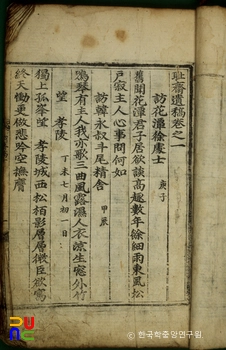 耻齋遺稿卷之一
訪花潭徐處士 庚子
舊聞花潭君子居欲談高趣數年徐細雨東風松
戶寂主人心事問何如
訪韓永叔斗尾精舍 甲辰
鳴琴有主人我亦歌三曲風露濕人衣涼生窓外竹
望 孝陵 丁未七月初一日
獨上孤峯望 孝陵城西松栢影層層微臣欲寫
終天慟更倣悲吟空撫膺
한국학중앙연구원